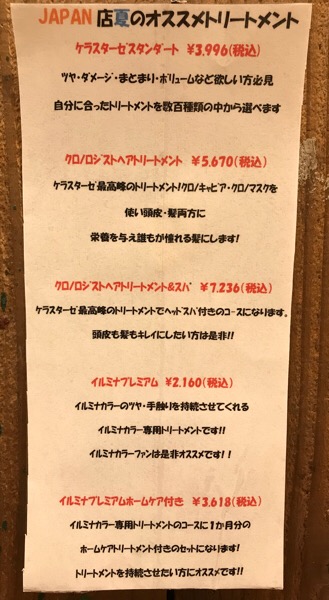 JAPAN 店夏のオススメトリートメント
ケラスターゼスタンダート ¥3,996(税込)
ツヤ・ダメージ・まとまり・ボリュームなど欲しい方必見
自分に合ったトリートメントを数百種類の中から選べます
クロノロジストヘアトリートメント ¥5,670(税込)
ケラスターゼ最高峰のトリートメント!クロノキャビア・クロノマスクを
使い頭皮・髪両方に
栄養を与え誰もが憧れる髪にします!
クロノロジストヘアトリートメント&スパ ¥7,236(税込)
ケラスターゼ最高峰のトリートメントでヘッドスパ付きのコースになります。
頭皮も髪もキレイにしたい方は是非!!
イルミナプレミアム ¥2,160(税込)
イルミナカラーのツヤ・手触りを持続させてくれる
イルミナカラー専用トリートメントです!!
イルミナカラーファンは是非オススメです!!
イルミナプレミアムホームケア付き ¥3,618(税込)
イルミナカラー専用トリートメントのコースに1か月分の
ホームケアトリートメント付きのセットになります!
トリートメントを持続させたい方にオススメです!!